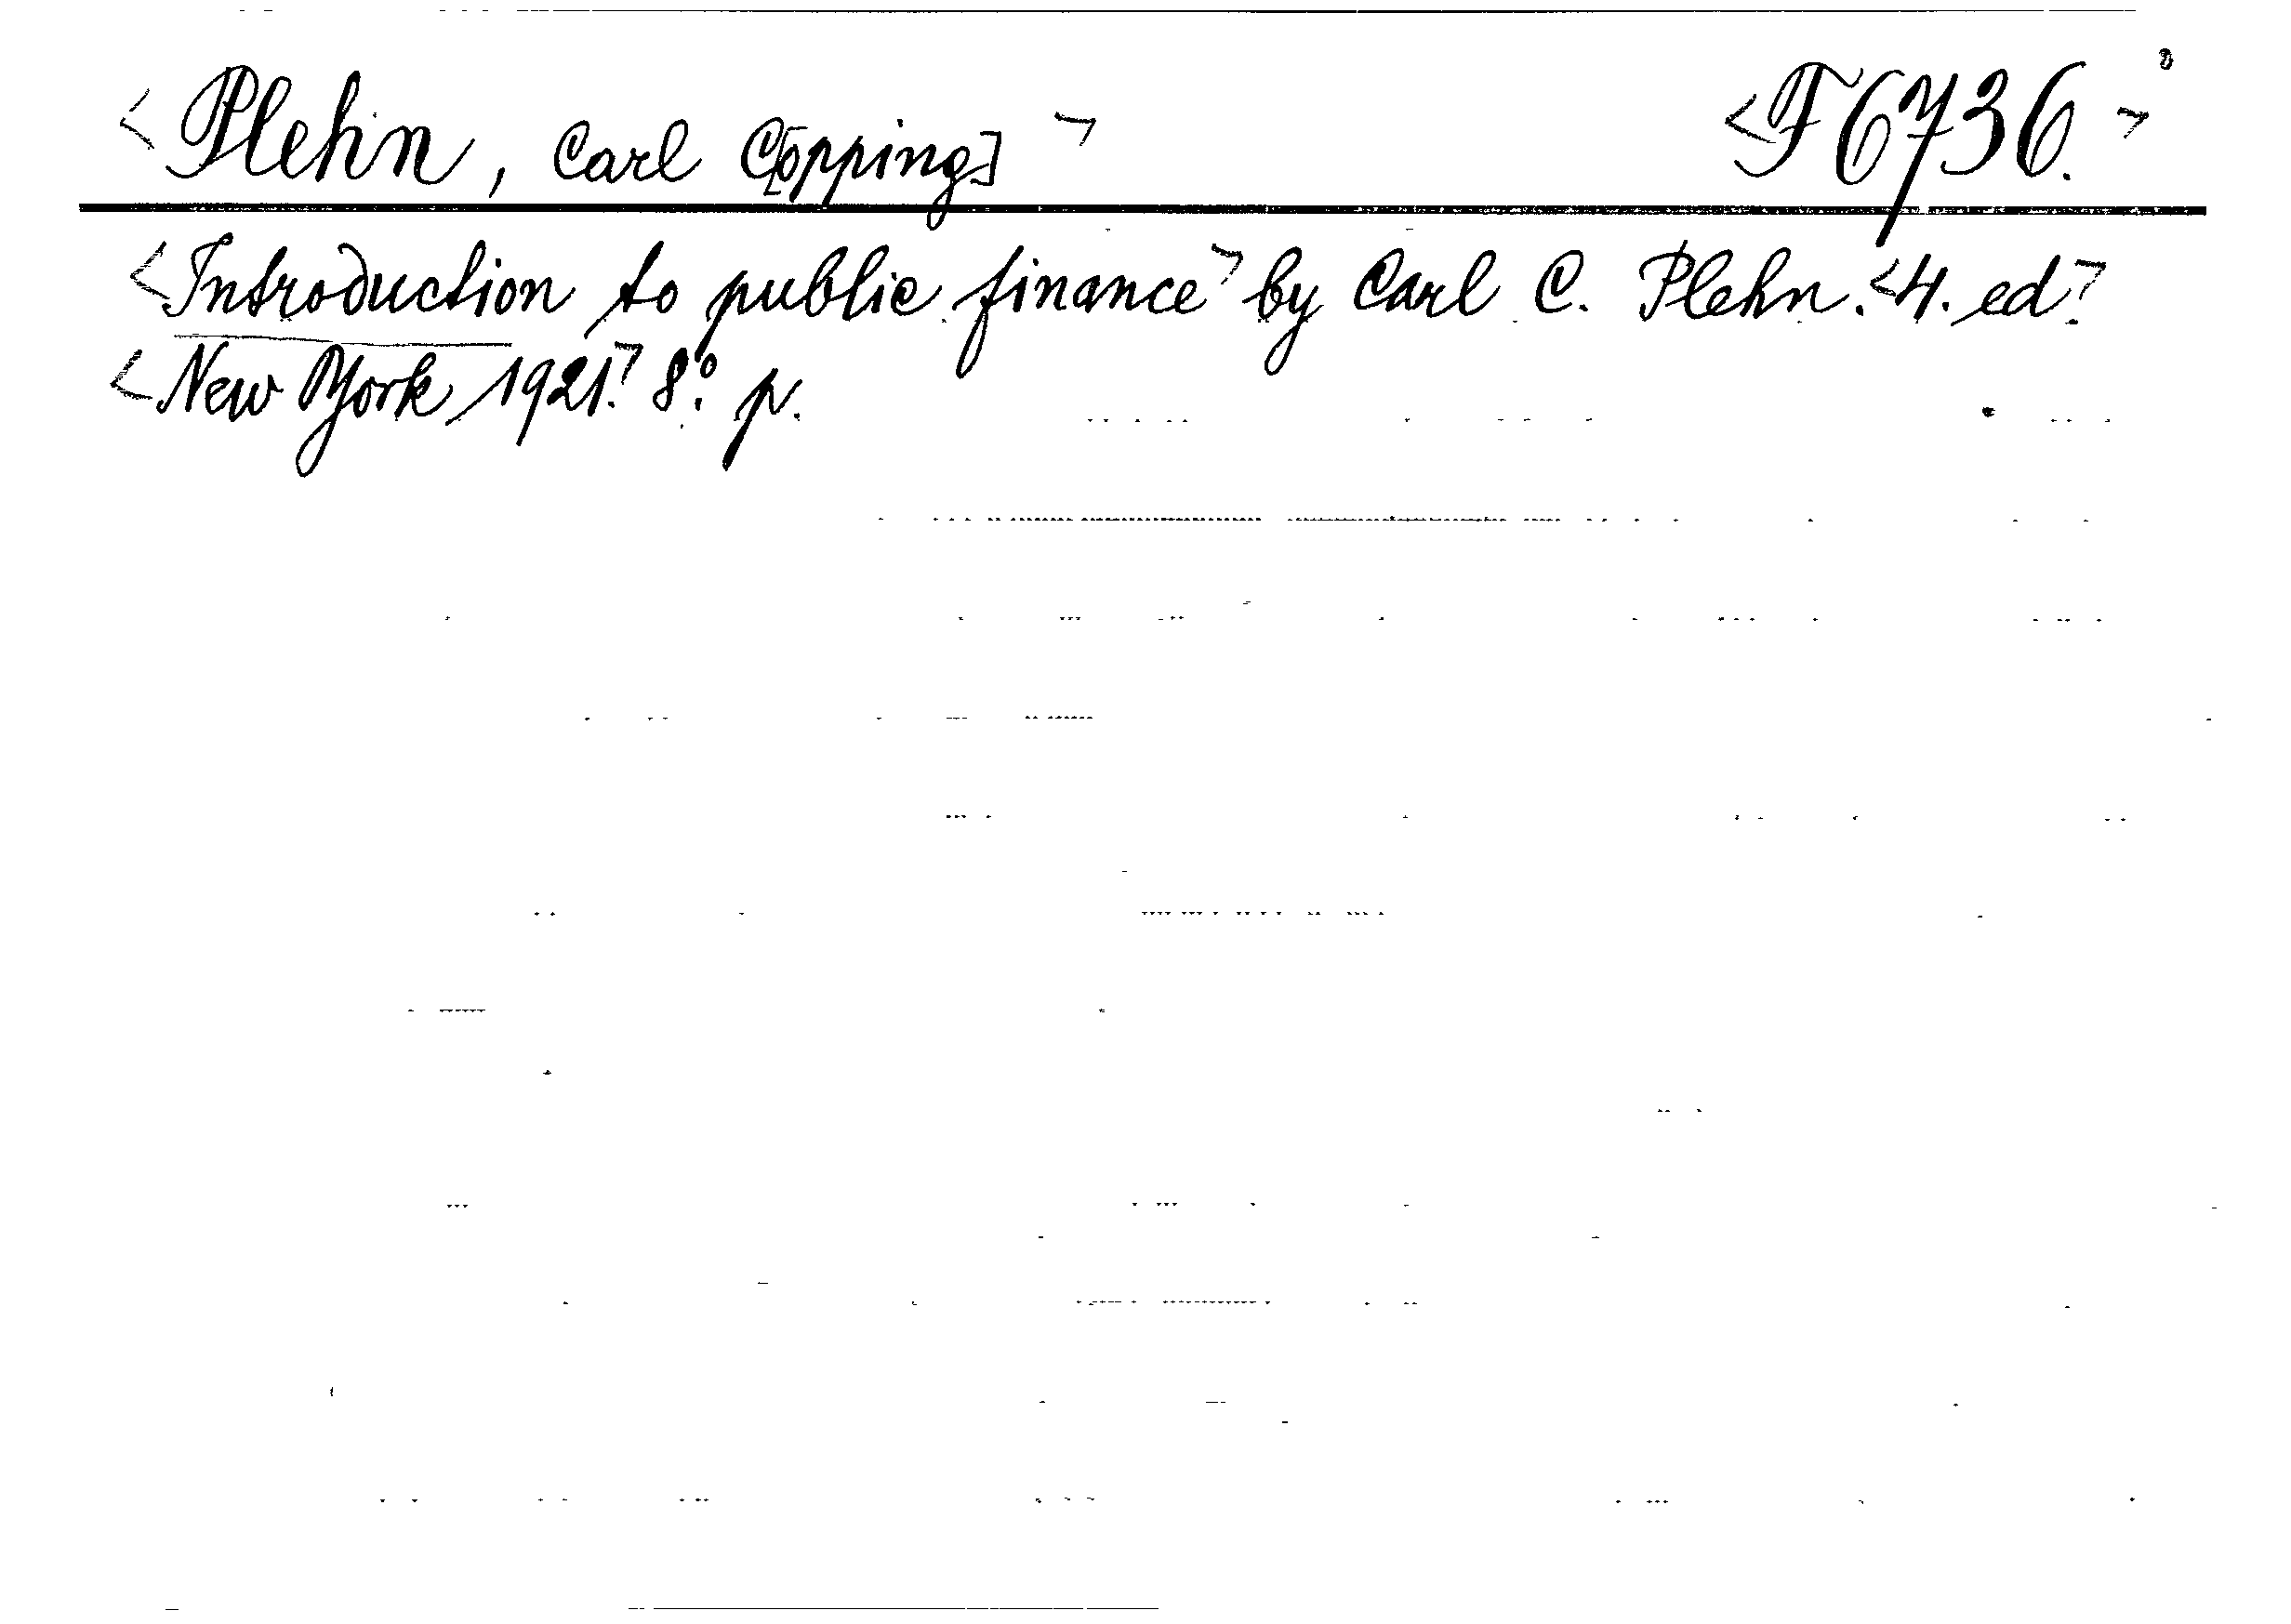 <Plehn, Carl C[opping]> <F6736.>
<Introduction to public finance> by Carl C. Plehn. <4. ed.>
<New York, 1921.> 8°. p.